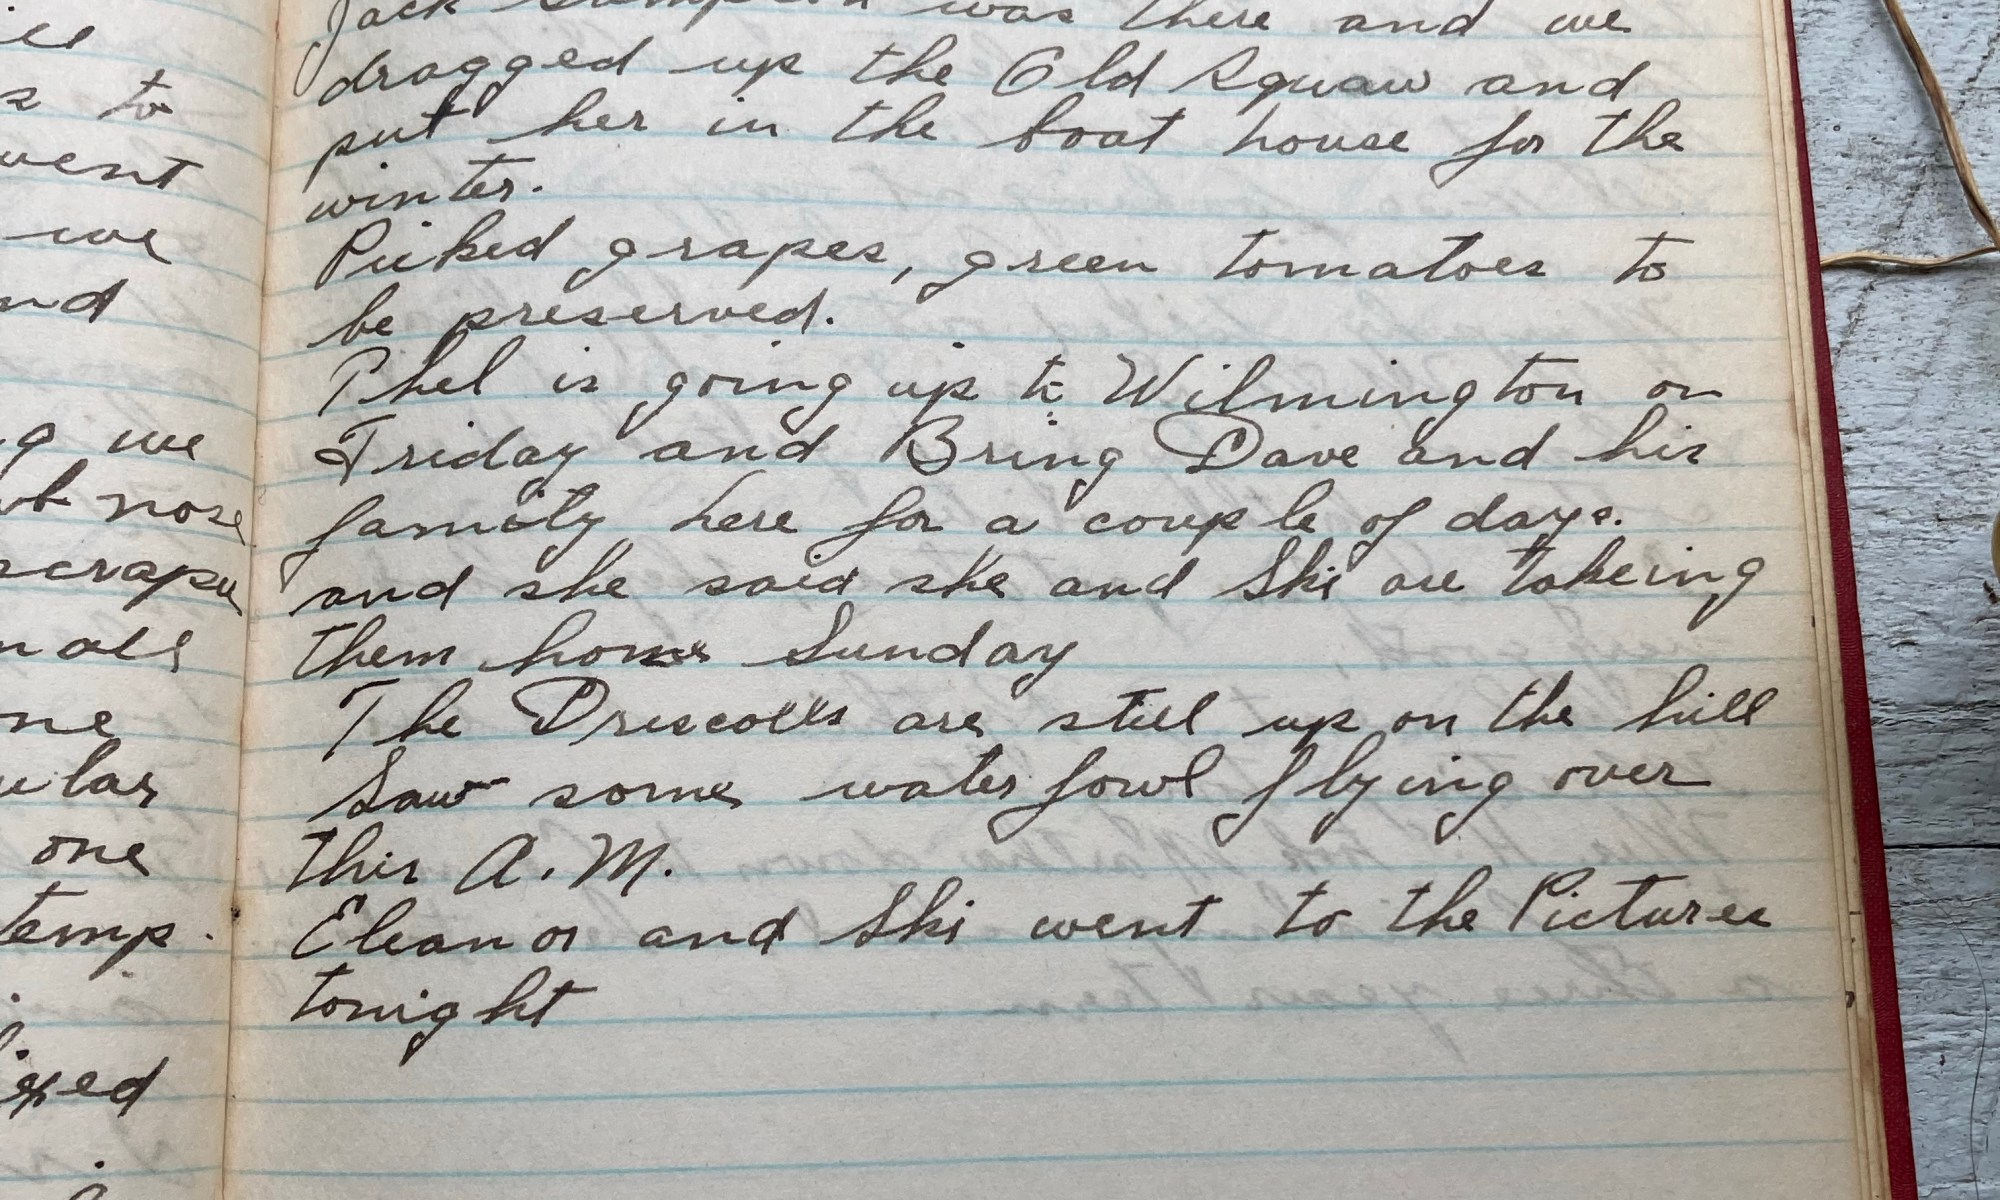 ill
s to
went
we
nd
we
nose
all
one
temp.
Jack was there and we
dragged up the Old Squaw and
put her in the boat house for the
winter.
Picked grapes, green tomatoes to
be preserved.
Phel is going up to Wilmington on
Friday and Bring Dave and his
family here for a couple of days.
and she said she and Ski are takeing
them home Sunday
The Driscolls are still up on the hill
Saw some water fowl flying over
this A.M.
Eleanor and Ski went to the Pictures
tonight